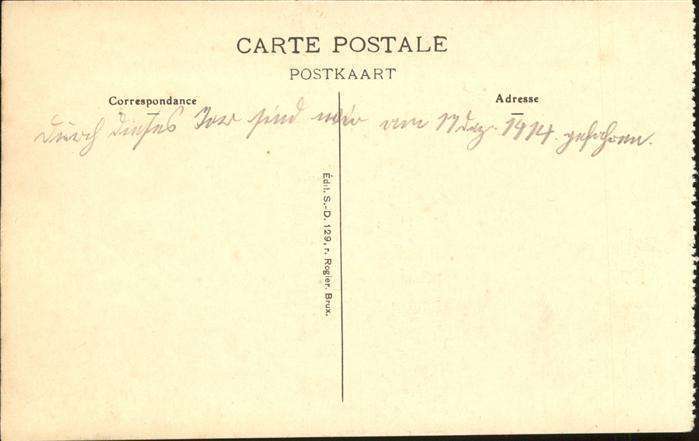 CARTE POSTALE
POSTKAART
Correspondance
Adresse
Durch dieses Tor sind wir am 17 Dez. 1914 gefahren.
Édit. S.-D. 129, r. Rogier. Brux.